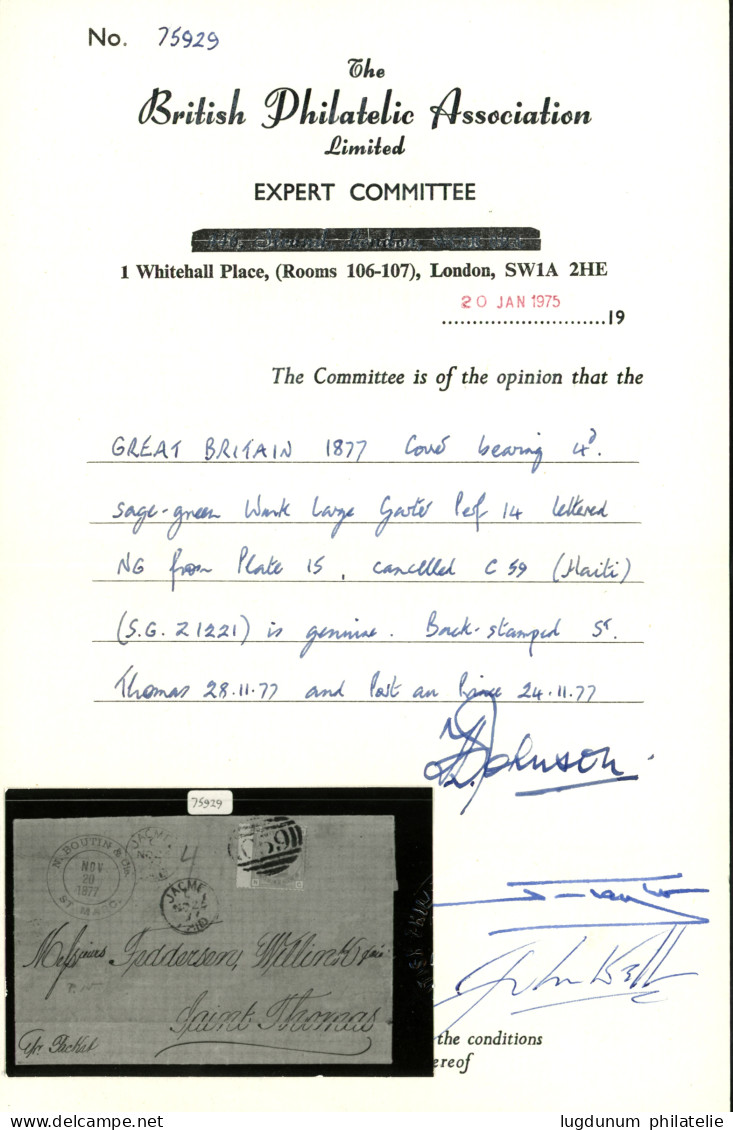 No. 75929
The
British Philatelic Association
Limited
EXPERT COMMITTEE
1 Whitehall Place, (Rooms 106-107), London, SW1A 2HE
20 JAN 1975
..........................19
The Committee is of the opinion that the
GREAT BRITAIN 1877 Cover bearing 4d.
sage-green Wmk Large Garter Perf 14 lettered
NG from Plate 15, cancelled C59 (Haiti)
(S.G. Z1221) is genuine. Back-stamped St.
Thomas 28.11.77 and Port au Prince 24.11.77
Johnson
75929
N. BOUTIN & Cie
NOV
20
1877
ST. MARC
JACMEL
4
C59
JACMEL
Messieurs Feddersen, Willink & Cie
Saint Thomas
pr Packet
John
the conditions
ereof
lugdunum philatelie